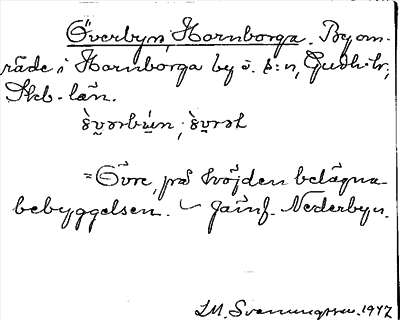 Överbyn, Hornborga. Byom-
råde i Hornborga by o. s:n, Gudh. hd;
Skb. län.
= Övre, på höjden belägna
bebyggelsen. ~ Jämf. Nederbyn.
I.M. Svenningsson. 1947